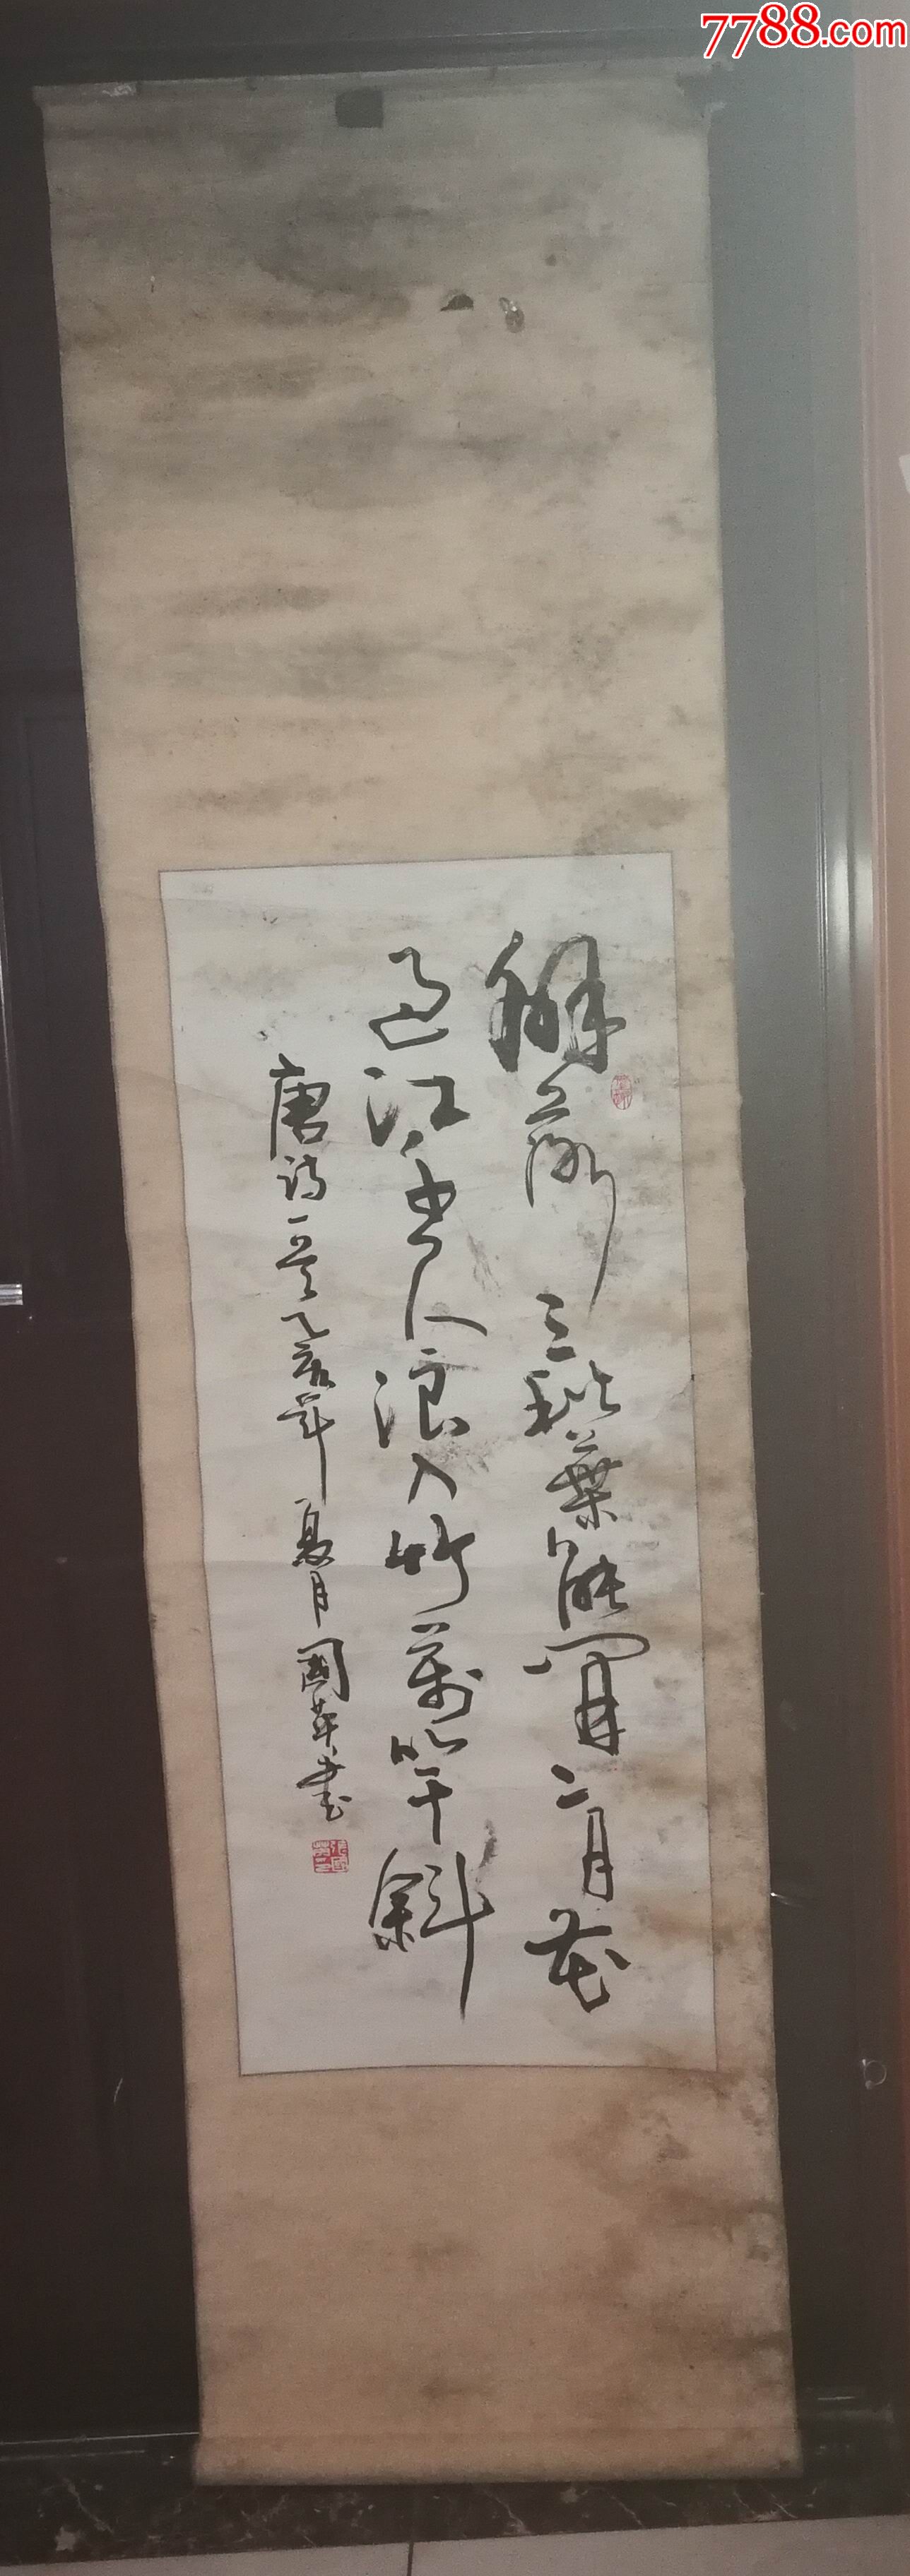 7788.com
解落三秋葉能開二月花
過江千尺浪入竹萬竿斜
唐詩一首乙亥年夏月國華書